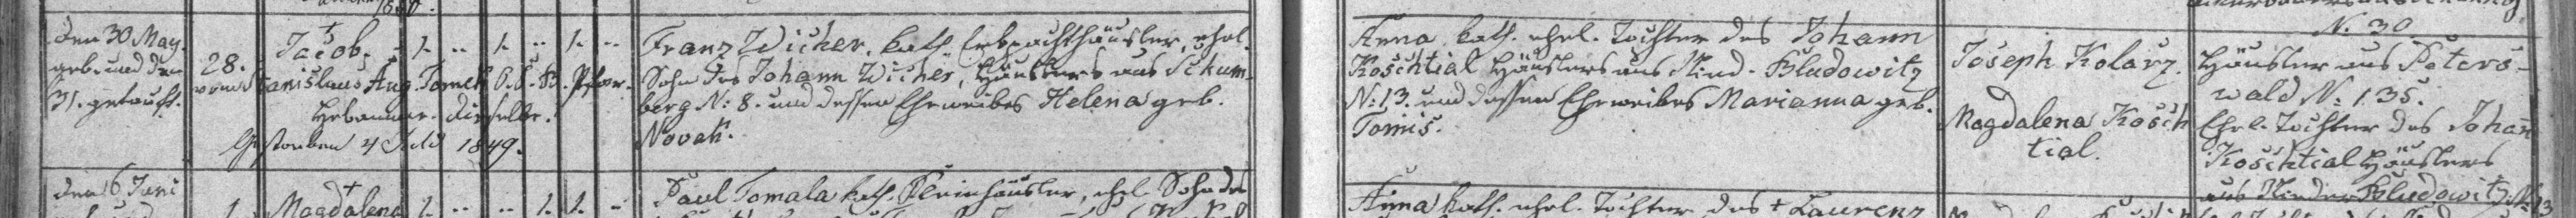 den 30 May.
geb. und den
31. getauft.
28.
vom
†
Jacob, - 1. .. 1. .. 1. ..
Stanislaus Aug. Tomek O. E. B. Pfar.
Hebamme. dieselbe.
Gestorben 4 Juli 1849.
Franz Wicher, kath. Erbpachthäusler, ehel.
Sohn des Johann Wicher, Häuslers aus Schum-
berg N: 8. und dessen Eheweibes Helena geb.
Novak.
Anna kath. ehel. Tochter des Johann
Koschtial Häuslers aus Nied. Bludowitz
N: 13. und dessen Eheweibes Marianna geb.
Tomis.
Joseph Kolarz.
Magdalena Kosch
tial.
N. 30.
Häusler aus Peters-
wald N: 135.
Ehel. Tochter des Johan
Koschtial Häuslers
aus Nieder Bludowitz N: 13
den 6 Juni
1.
†
Magdalena 1. .. .. 1. 1. ..
Paul Tomala kath. Kleinhäusler, ehel. Sohn des
Anna kath. ehel. Tochter des † Laurenz